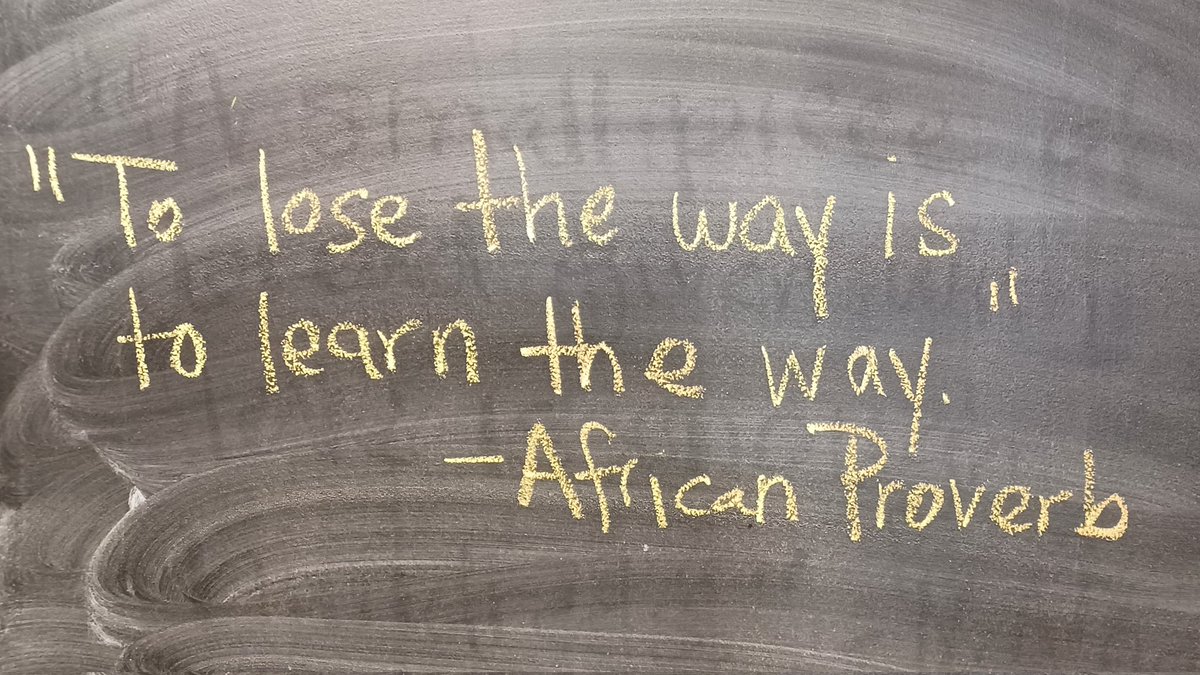 "To lose the way is
to learn the way."
-African Proverb